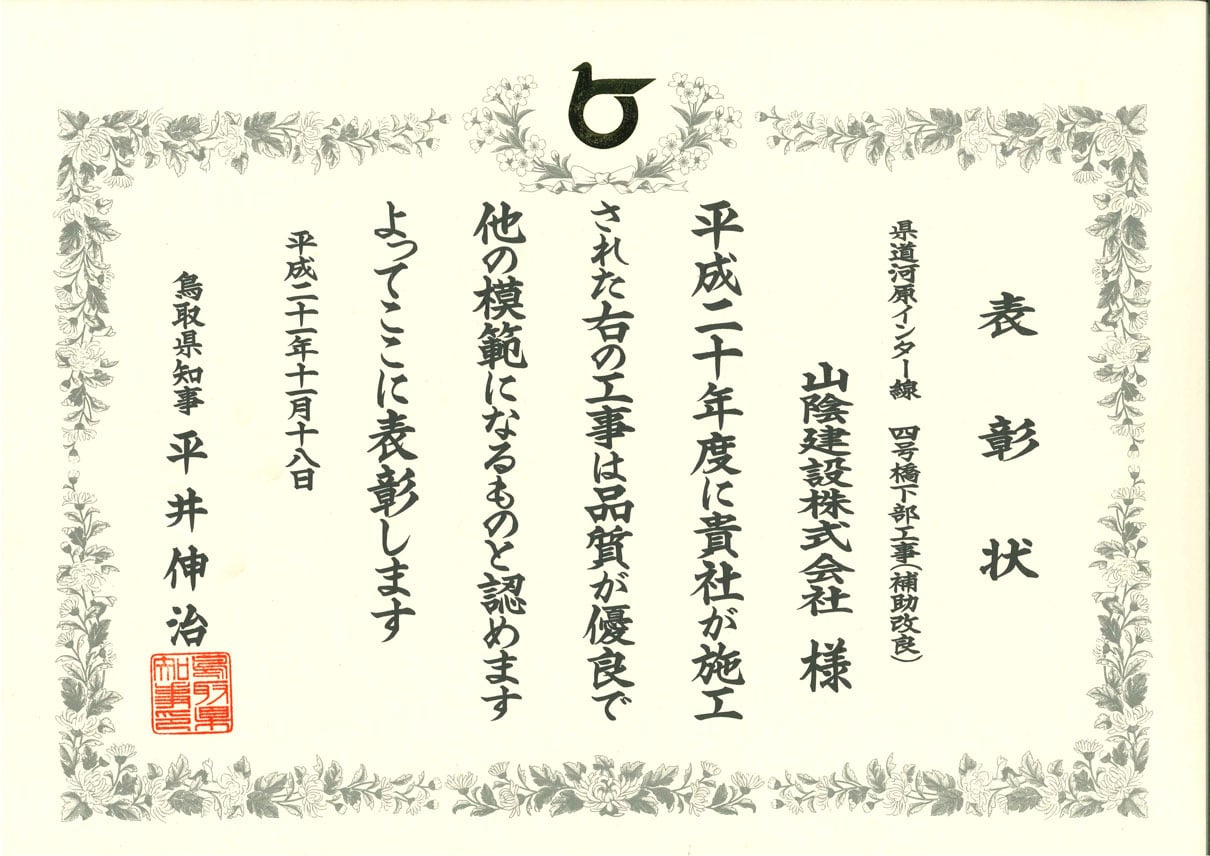 表彰状
県道河原インター線 四号橋下部工事(補助改良)
山陰建設株式会社 様
平成二十年度に貴社が施工
された右の工事は品質が優良で
他の模範になるものと認めます
よってここに表彰します
平成二十一年十一月十八日
鳥取県知事 平井伸治
鳥取県
知事印